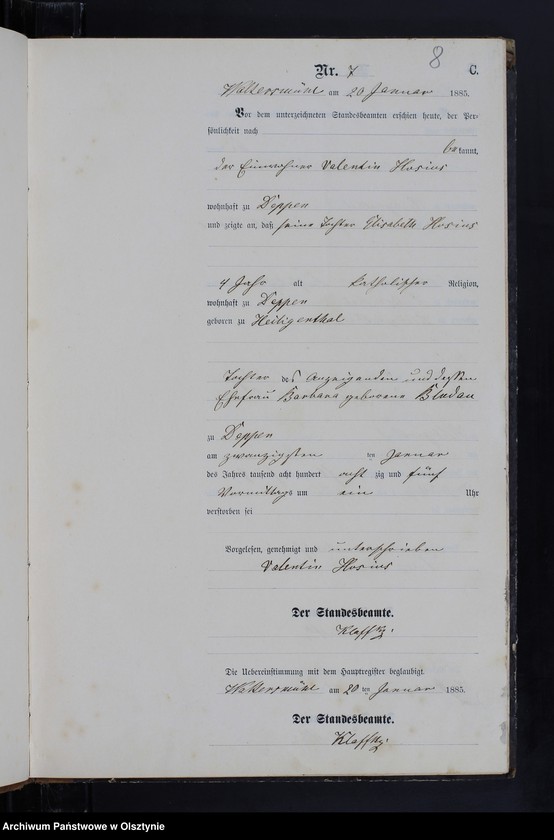 8
Nr. 7 C.
Waltersmühl am 20 Januar 1885.
Vor dem unterzeichneten Standesbeamten erschien heute, der Per-
sönlichkeit nach
bekannt,
der Einwohner Valentin Hosius
wohnhaft zu Deppen
und zeigte an, daß seine Tochter Elisabeth Hosius
Jahr alt katholischer Religion,
wohnhaft zu Deppen
geboren zu Heiligenthal
Tochter des Anzeigenden und dessen
Ehefrau Barbara geborene Bludau
zu Deppen
am zwanzigsten ten Januar
des Jahres tausend acht hundert acht zig und fünf
Vormittags um ein Uhr
verstorben sei
Vorgelesen, genehmigt und unterschrieben
Valentin Hosius
Der Standesbeamte.
Die Uebereinstimmung mit dem Hauptregister beglaubigt.
Waltersmühl am 20 ten Januar 1885.
Der Standesbeamte.
Archiwum Państwowe w Olsztynie